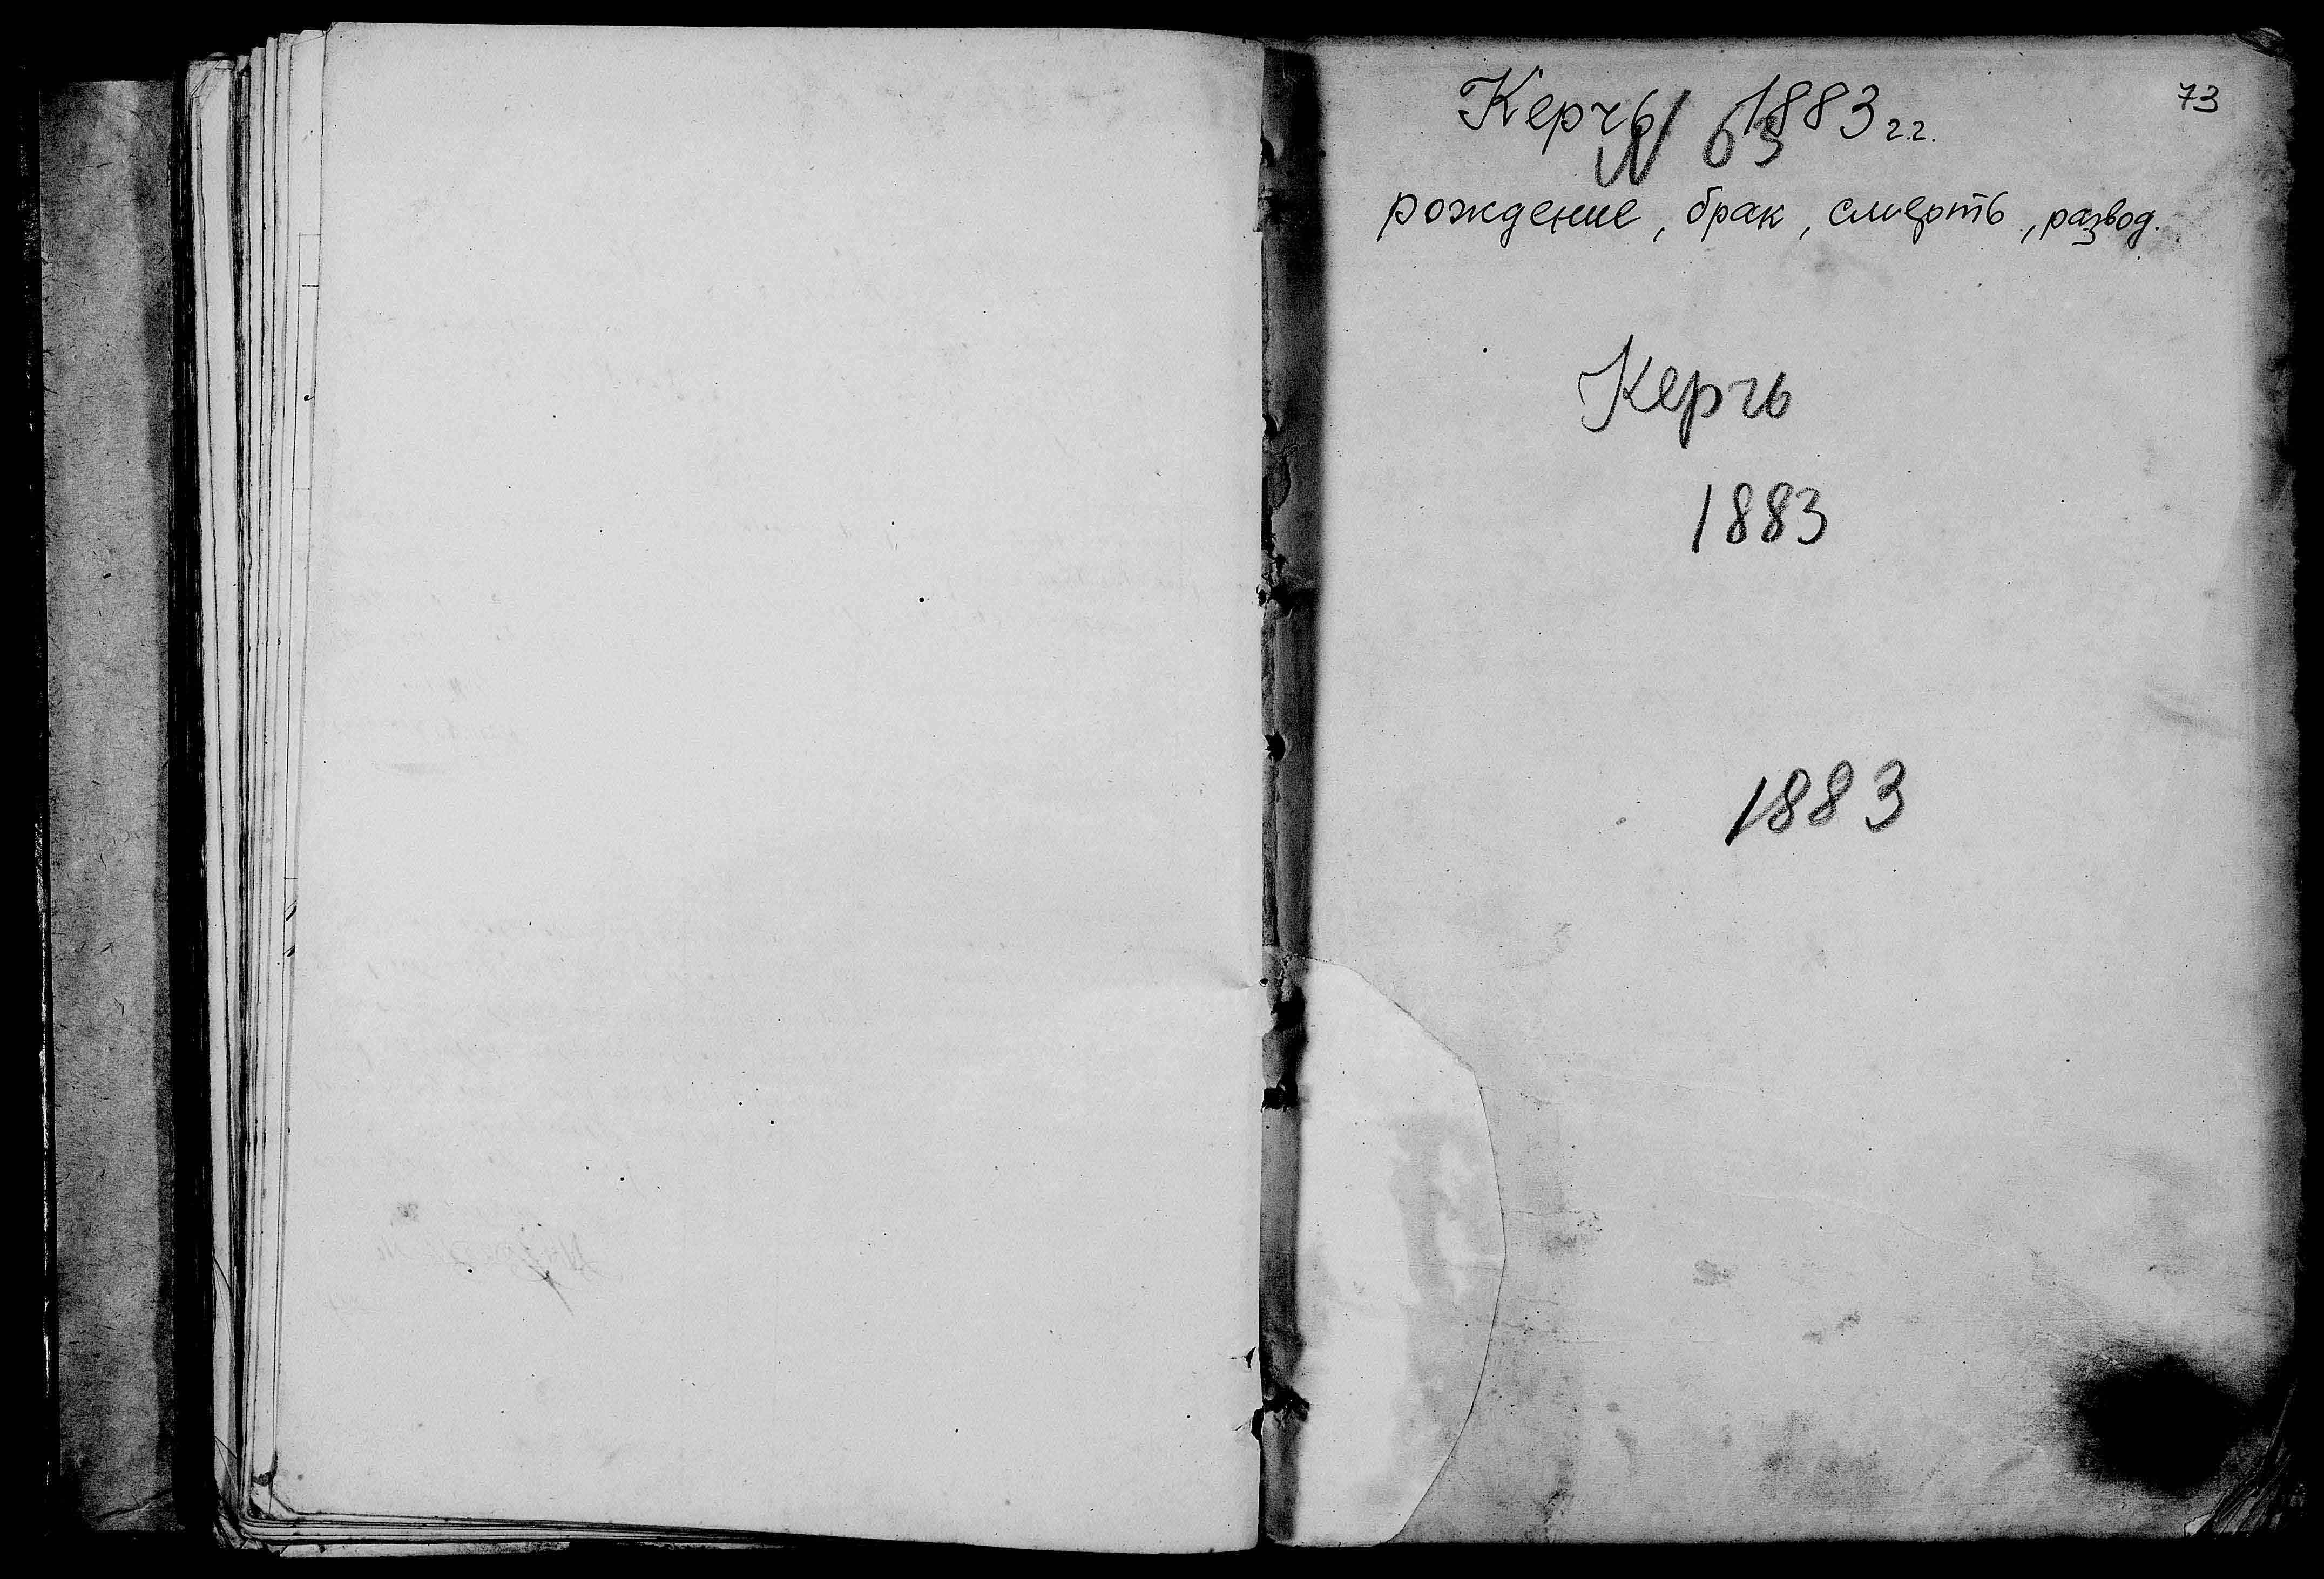 73
Керчь 1883 г.г.
N 63
рождение, брак, смерть, развод.
Керчь
1883
1883